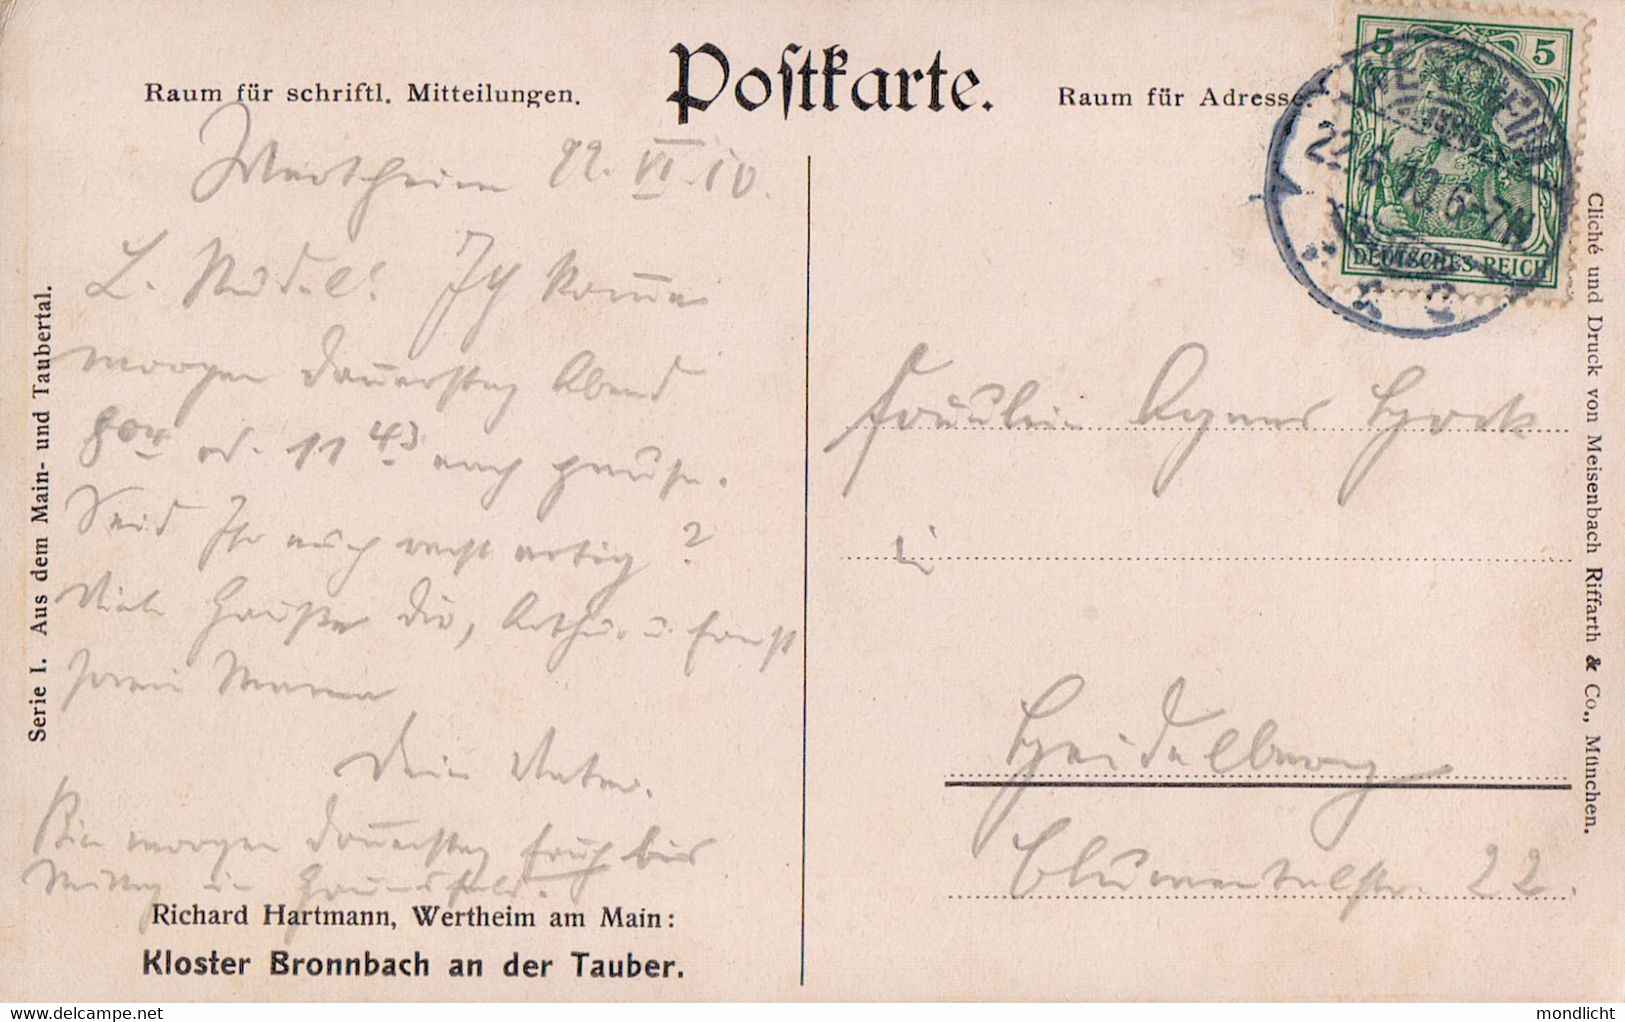 Postkarte.
Raum für schriftl. Mitteilungen.
Raum für Adresse.
5 5
DEUTSCHES REICH
WERTHEIM
22.6.10. 6-7N
Wertheim 22. VI. 10.
L. Mädel! Ich komme
morgen Donnerstag Abend
od. 11 43 nach Hause.
Seid Ihr auch recht artig?
Viele Grüße Dir, Arthur u. Ernst
sowie Mama
Dein Vater.
Bin morgen Donnerstag früh bis
Mittag in Grünsfeld.
Richard Hartmann, Wertheim am Main:
Kloster Bronnbach an der Tauber.
Serie I. Aus dem Main- und Taubertal.
Fräulein Agnes
in
Heidelberg
Blumentalstr. 22.
Cliché und Druck von Meisenbach Riffarth & Co., München.
the-best-of-ww1.delcampe.net
mondlicht